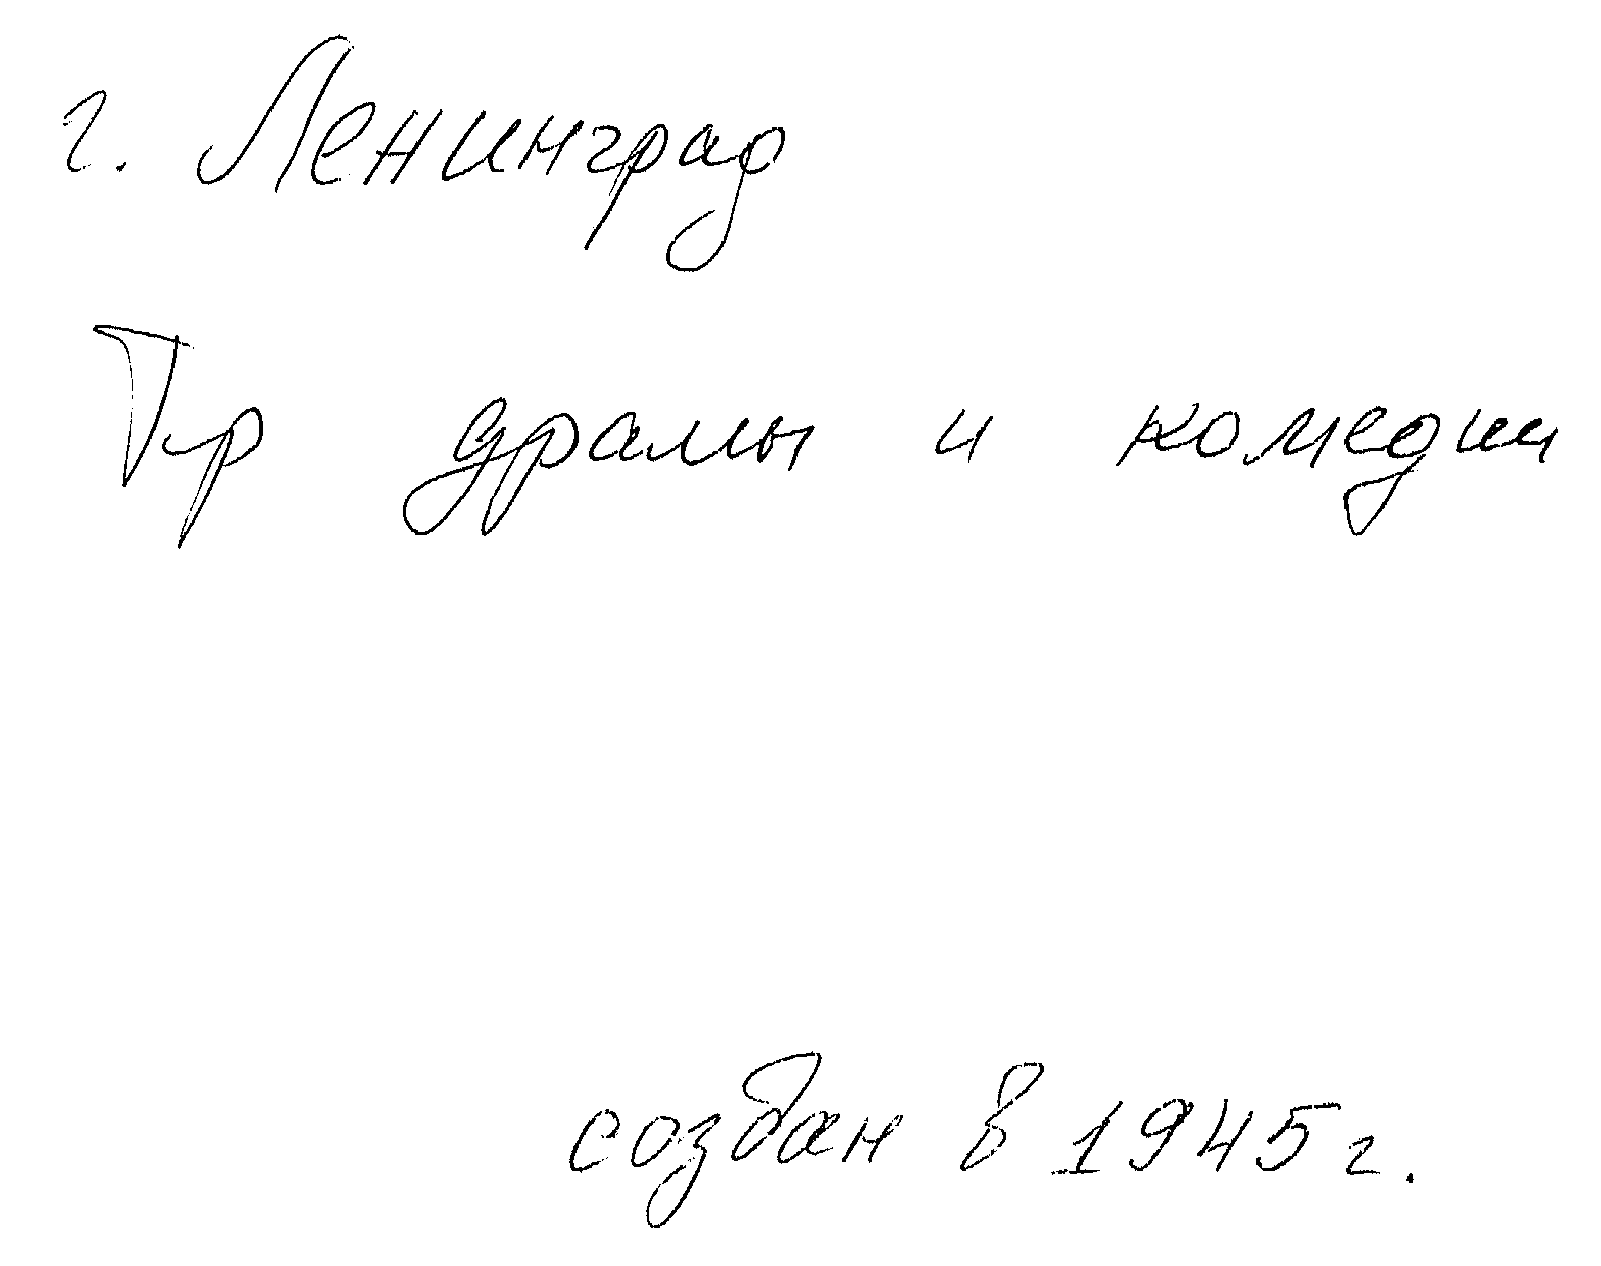 г. Ленинград
Тр драмы и комедии
создан в 1945 г.